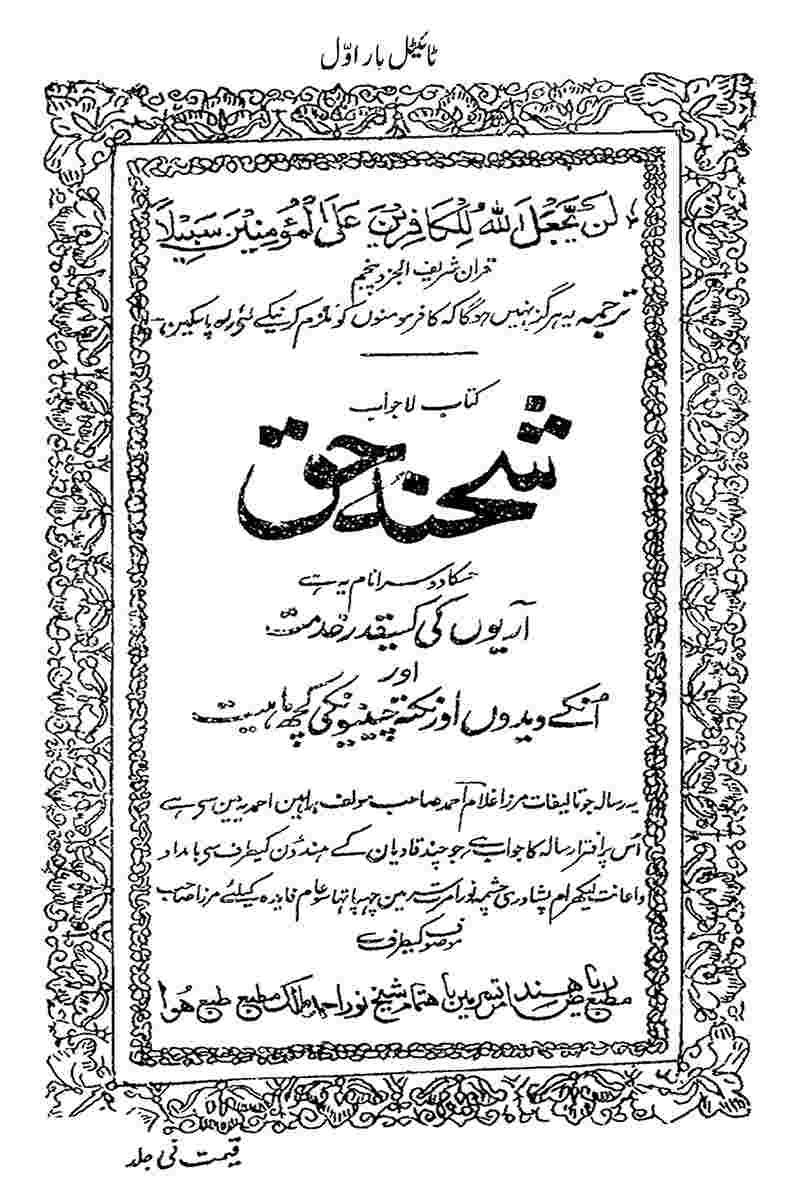 ٹائیٹل بار اوّل
لَنْ یَّجْعَلَ اللّٰهُ لِلْکَافِرِیْنَ عَلَی الْمُؤْمِنِیْنَ سَبِیْلًا
قران شریف الجزو پنجم
ترجمہ یہ ہرگز نہیں ہوگا کہ کافر مومنوں کو ملزم کرنیکے لئے راہ پاسکیں
کتاب لاجواب
شحنۂ حق
جسکا دوسرا نام یہ ہے
آریوں کی کسیقدر خدمت
اور
اُنکے ویدوں اور نکتہ چینیونکی کچھ ماہیت
یہ رسالہ جو تالیفات مرزا غلام احمد صاحب مولف براہین احمدیہ مین سی ہے
اُس پر افترا رسالہ کا جواب ہے جو چند قادیان کے ہندؤن کیطرف سی بامداد
و اعانت لیکھرام پشاوری چشمہ نور امرتسر مین چھپا تھا سو عام فایدہ کیلئے مرزا صاحب
موصوف کیطرف سے
مطبع ریاض ہند امرتسر مین باہتمام شیخ نور احمد مالک مطبع طبع ہُوا
قیمت فی جلد